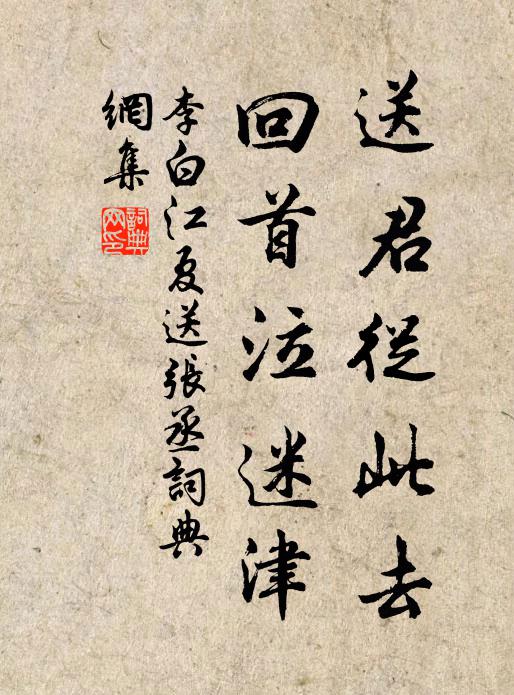 送君從此去
回首泣迷津
李白江夏送張丞詞典
網集
詞典
网印